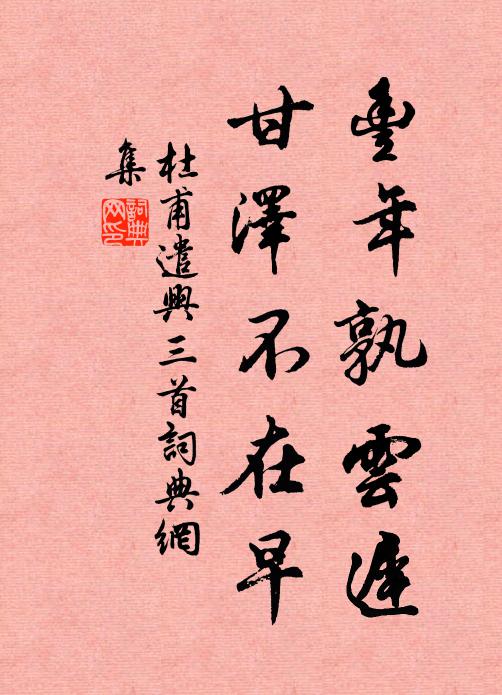 豐年孰雲遲
甘澤不在早
杜甫遣興三首詞典網
集
詞典网印